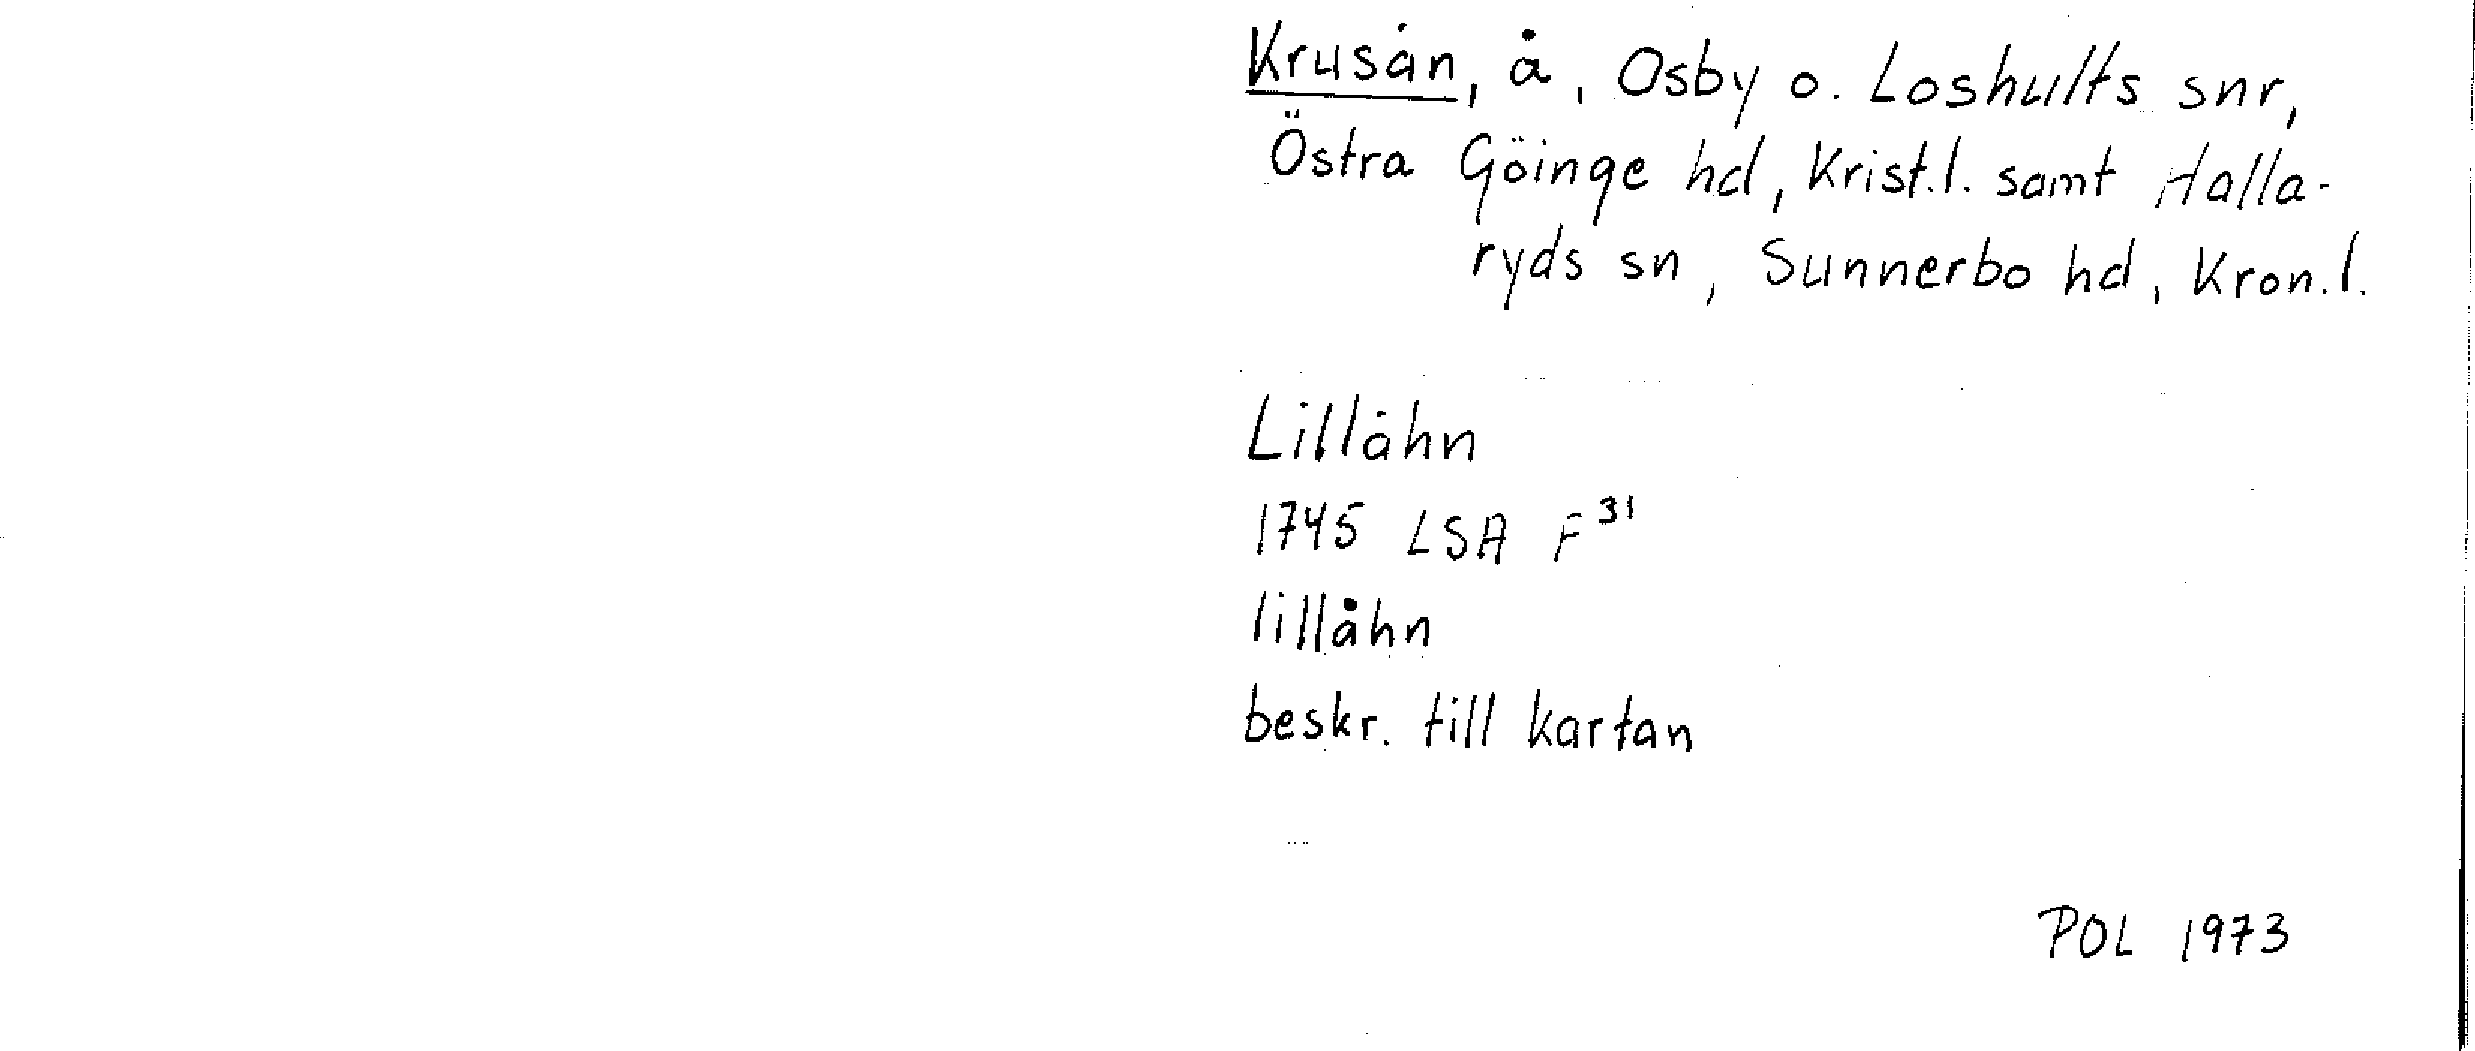 Krusån, å, Osby o. Loshults snr,
Östra Göinge hd, Krist.l. samt Halla-
ryds sn, Sunnerbo hd, Kron.l.
Lillåhn
1745 LSA F³¹
lillåhn
beskr. till kartan
POL 1973